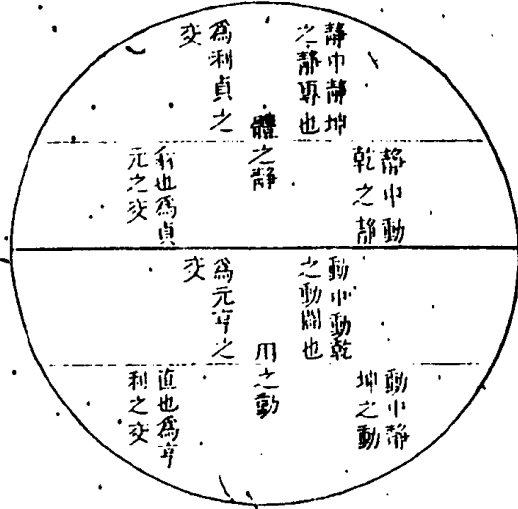 靜中靜坤
之靜專也
爲利貞之
交
體之靜
靜中動
乾之靜
翕也爲貞
元之交
動中動乾
之動闢也
爲元亨之
交
用之動
動中靜
坤之動
直也爲亨
利之交